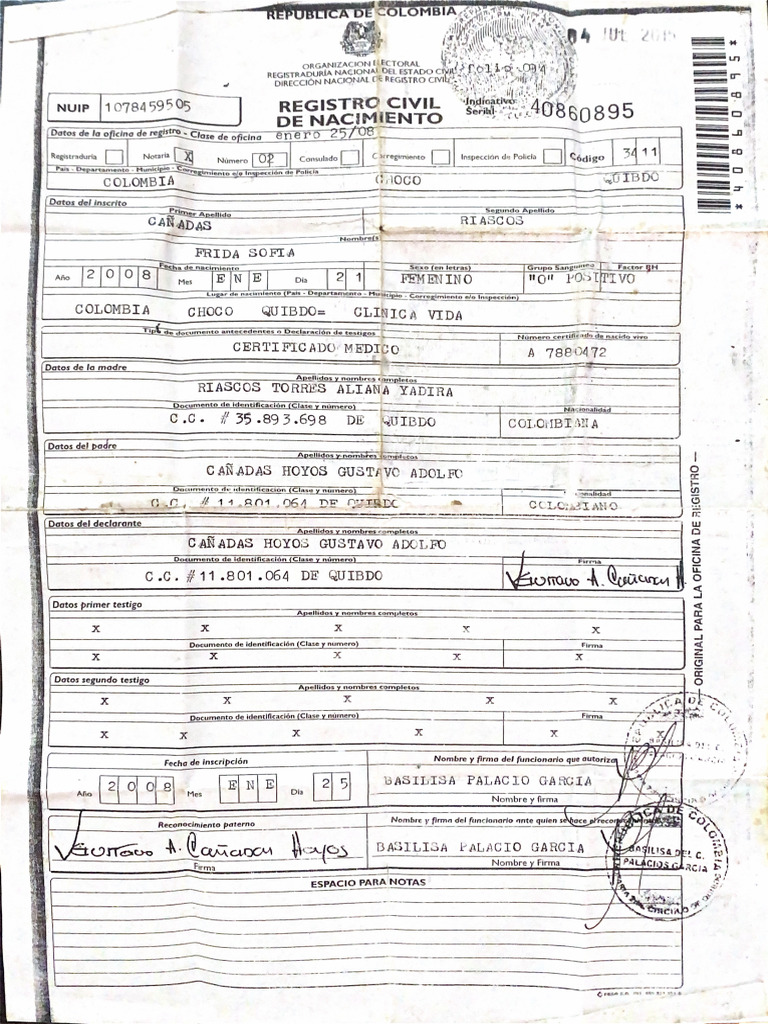 REPUBLICA DE COLOMBIA
04 JUL 2015
ORGANIZACION ELECTORAL
REGISTRADURÍA NACIONAL DEL ESTADO CIVIL
DIRECCIÓN NACIONAL DE REGISTRO CIVIL
NUIP 1078459505
REGISTRO CIVIL
DE NACIMIENTO
Indicativo
Serial 40860895
*40860895*
Datos de la oficina de registro - Clase de oficina enero 25/08
Registraduría Notaría X Número 02 Consulado Corregimiento Inspección de Policía Código 3411
País - Departamento - Municipio - Corregimiento e/o Inspección de Policía
COLOMBIA CHOCO QUIBDO
Datos del inscrito
Primer Apellido Segundo Apellido
CAÑADAS RIASCOS
Nombre(s)
FRIDA SOFIA
Fecha de nacimiento Sexo (en letras) Grupo Sanguíneo Factor RH
Año 2008 Mes ENE Día 21 FEMENINO "O" POSITIVO
Lugar de nacimiento (País - Departamento - Municipio - Corregimiento e/o Inspección)
COLOMBIA CHOCO QUIBDO= CLINICA VIDA
Tipo de documento antecedentes o Declaración de testigos Número certificado de nacido vivo
CERTIFICADO MEDICO A 7880472
Datos de la madre
Apellidos y nombres completos
RIASCOS TORRES ALIANA YADIRA
Documento de identificación (Clase y número) Nacionalidad
C.C. # 35.893.698 DE QUIBDO COLOMBIANA
Datos del padre
Apellidos y nombres completos
CAÑADAS HOYOS GUSTAVO ADOLFO
Documento de identificación (Clase y número) Nacionalidad
C.C. # 11.801.064 DE QUIBDO COLOMBIANO
Datos del declarante
Apellidos y nombres completos
CAÑADAS HOYOS GUSTAVO ADOLFO
Documento de identificación (Clase y número) Firma
C.C. # 11.801.064 DE QUIBDO Gustavo A. Cañadas H
Datos primer testigo
Apellidos y nombres completos
X X X X X
Documento de identificación (Clase y número) Firma
X X X X X
Datos segundo testigo
Apellidos y nombres completos
X X X X X
Documento de identificación (Clase y número) Firma
X X X X X X
Fecha de inscripción Nombre y firma del funcionario que autoriza
Año 2008 Mes ENE Día 25 BASILISA PALACIO GARCIA
Nombre y firma
Reconocimiento paterno Nombre y firma del funcionario ante quien se hace el reconocimiento
Gustavo A. Cañadas Hoyos BASILISA PALACIO GARCIA
Firma Nombre y firma
ESPACIO PARA NOTAS
ORIGINAL PARA LA OFICINA DE REGISTRO
REPUBLICA DE COLOMBIA
REPUBLICA DE COLOMBIA
BASILISA DEL C.
PALACIOS GARCIA